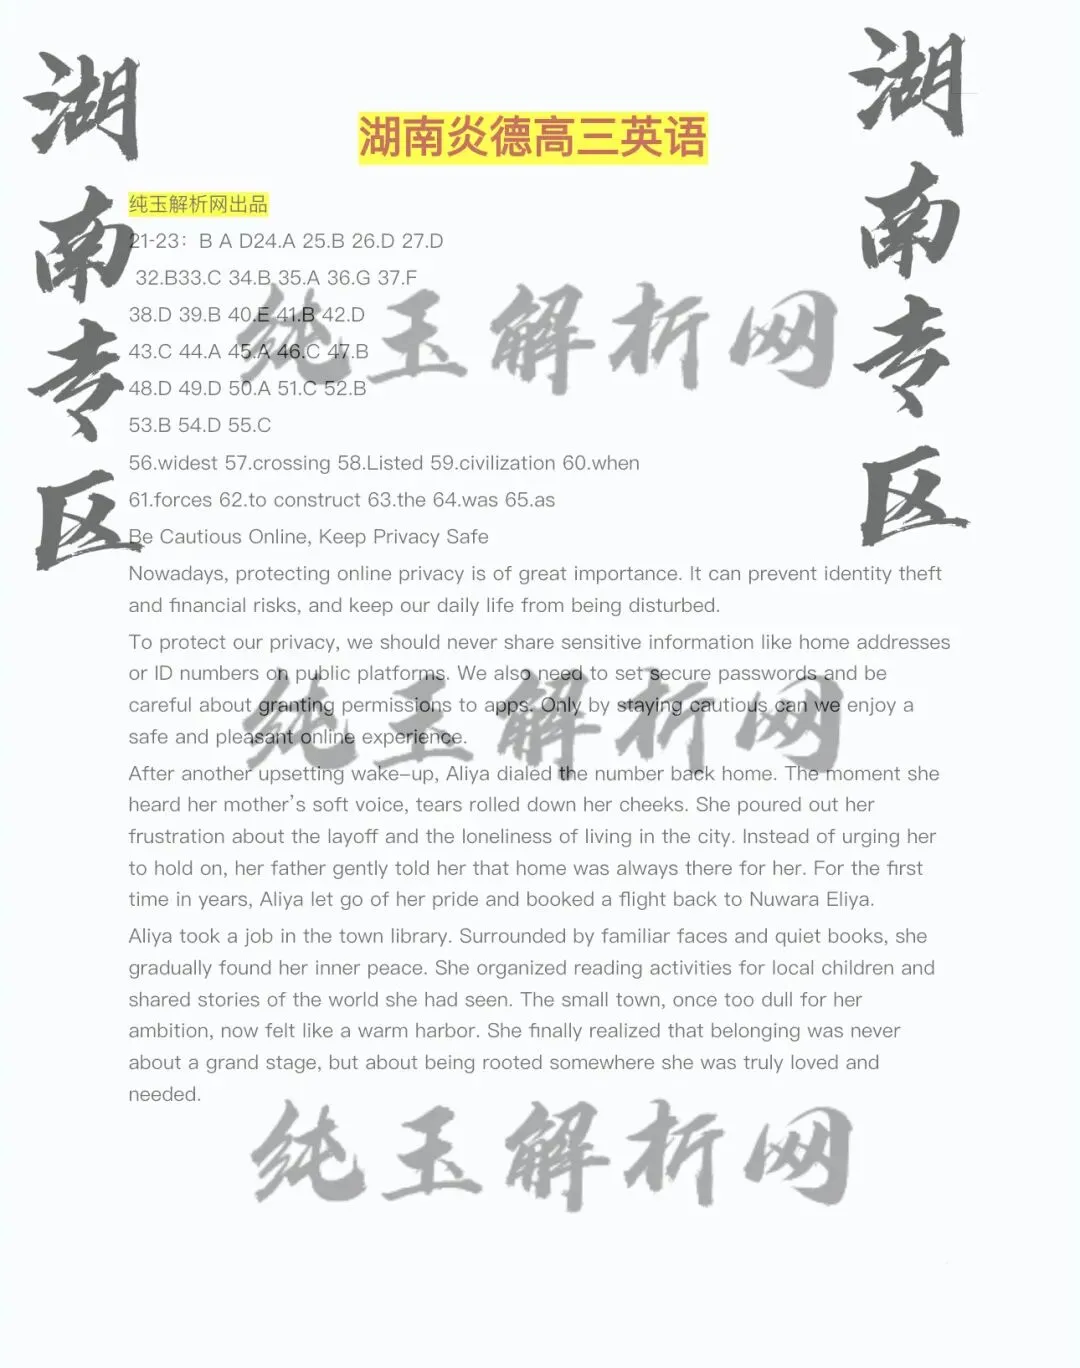 湖南专区
湖南专区
湖南炎德高三英语
纯玉解析网出品
21-23：B A D24.A 25.B 26.D 27.D
32.B33.C 34.B 35.A 36.G 37.F
38.D 39.B 40.E 41.B 42.D
43.C 44.A 45.A 46.C 47.B
48.D 49.D 50.A 51.C 52.B
53.B 54.D 55.C
56.widest 57.crossing 58.Listed 59.civilization 60.when
61.forces 62.to construct 63.the 64.was 65.as
Be Cautious Online, Keep Privacy Safe
Nowadays, protecting online privacy is of great importance. It can prevent identity theft
and financial risks, and keep our daily life from being disturbed.
To protect our privacy, we should never share sensitive information like home addresses
or ID numbers on public platforms. We also need to set secure passwords and be
careful about granting permissions to apps. Only by staying cautious can we enjoy a
safe and pleasant online experience.
After another upsetting wake-up, Aliya dialed the number back home. The moment she
heard her mother's soft voice, tears rolled down her cheeks. She poured out her
frustration about the layoff and the loneliness of living in the city. Instead of urging her
to hold on, her father gently told her that home was always there for her. For the first
time in years, Aliya let go of her pride and booked a flight back to Nuwara Eliya.
Aliya took a job in the town library. Surrounded by familiar faces and quiet books, she
gradually found her inner peace. She organized reading activities for local children and
shared stories of the world she had seen. The small town, once too dull for her
ambition, now felt like a warm harbor. She finally realized that belonging was never
about a grand stage, but about being rooted somewhere she was truly loved and
needed.
纯玉解析网
纯玉解析网
纯玉解析网